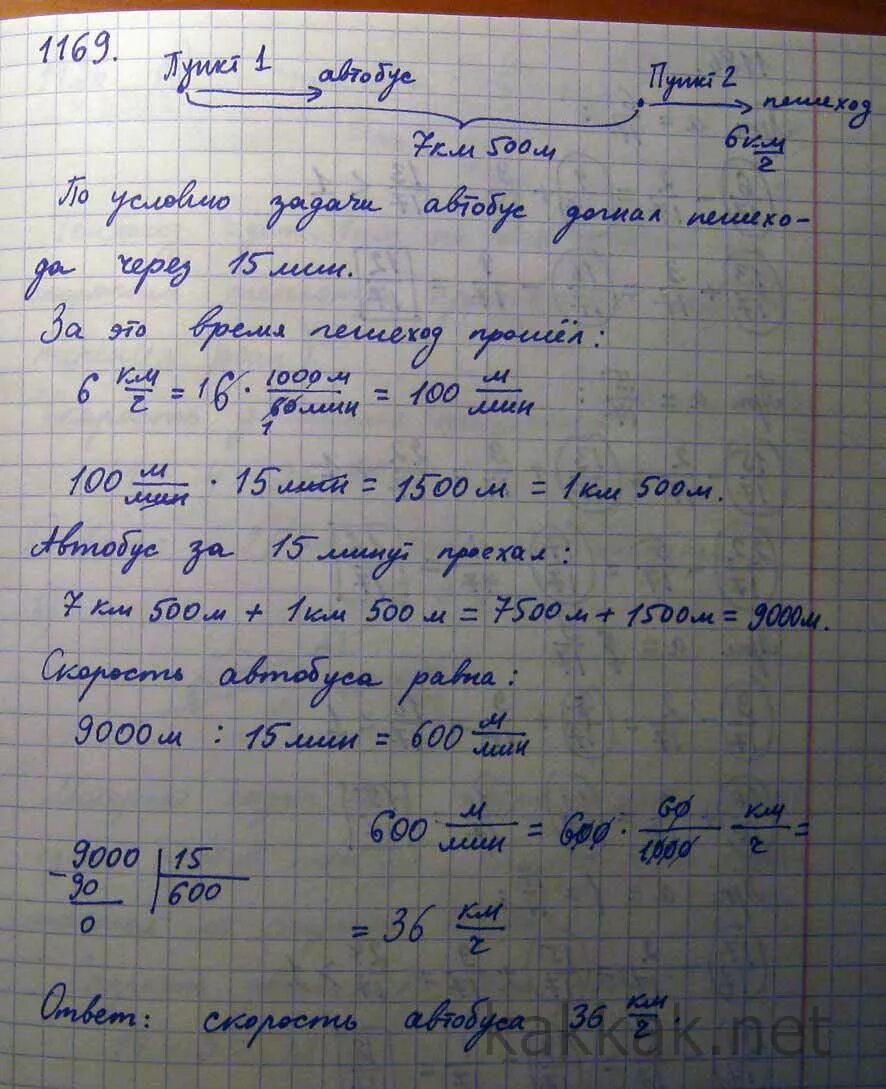 1169.
Пункт 1 автобус Пункт 2 пешеход
7км 500м 6 км/ч
По условию задачи автобус догнал пешехо-
да через 15 мин.
За это время пешеход прошёл:
6 км/ч = 16 · 1000 м/60 мин = 100 м/мин
1
100 м/мин · 15 мин = 1500 м = 1 км 500 м.
Автобус за 15 минут проехал:
7 км 500 м + 1 км 500 м = 7500 м + 1500 м = 9000 м.
Скорость автобуса равна:
9000 м : 15 мин = 600 м/мин
600 м/мин = 600 · 60/1000 км/ч =
9000 | 15
- 90 | 600
0
= 36 км/ч
Ответ: скорость автобуса 36 км/ч.
kakkak.net